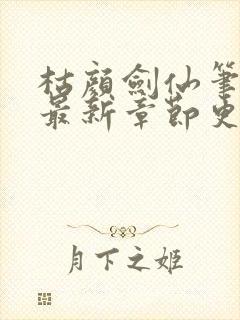 枯顏劍仙筆
最新章節史
月下之姬